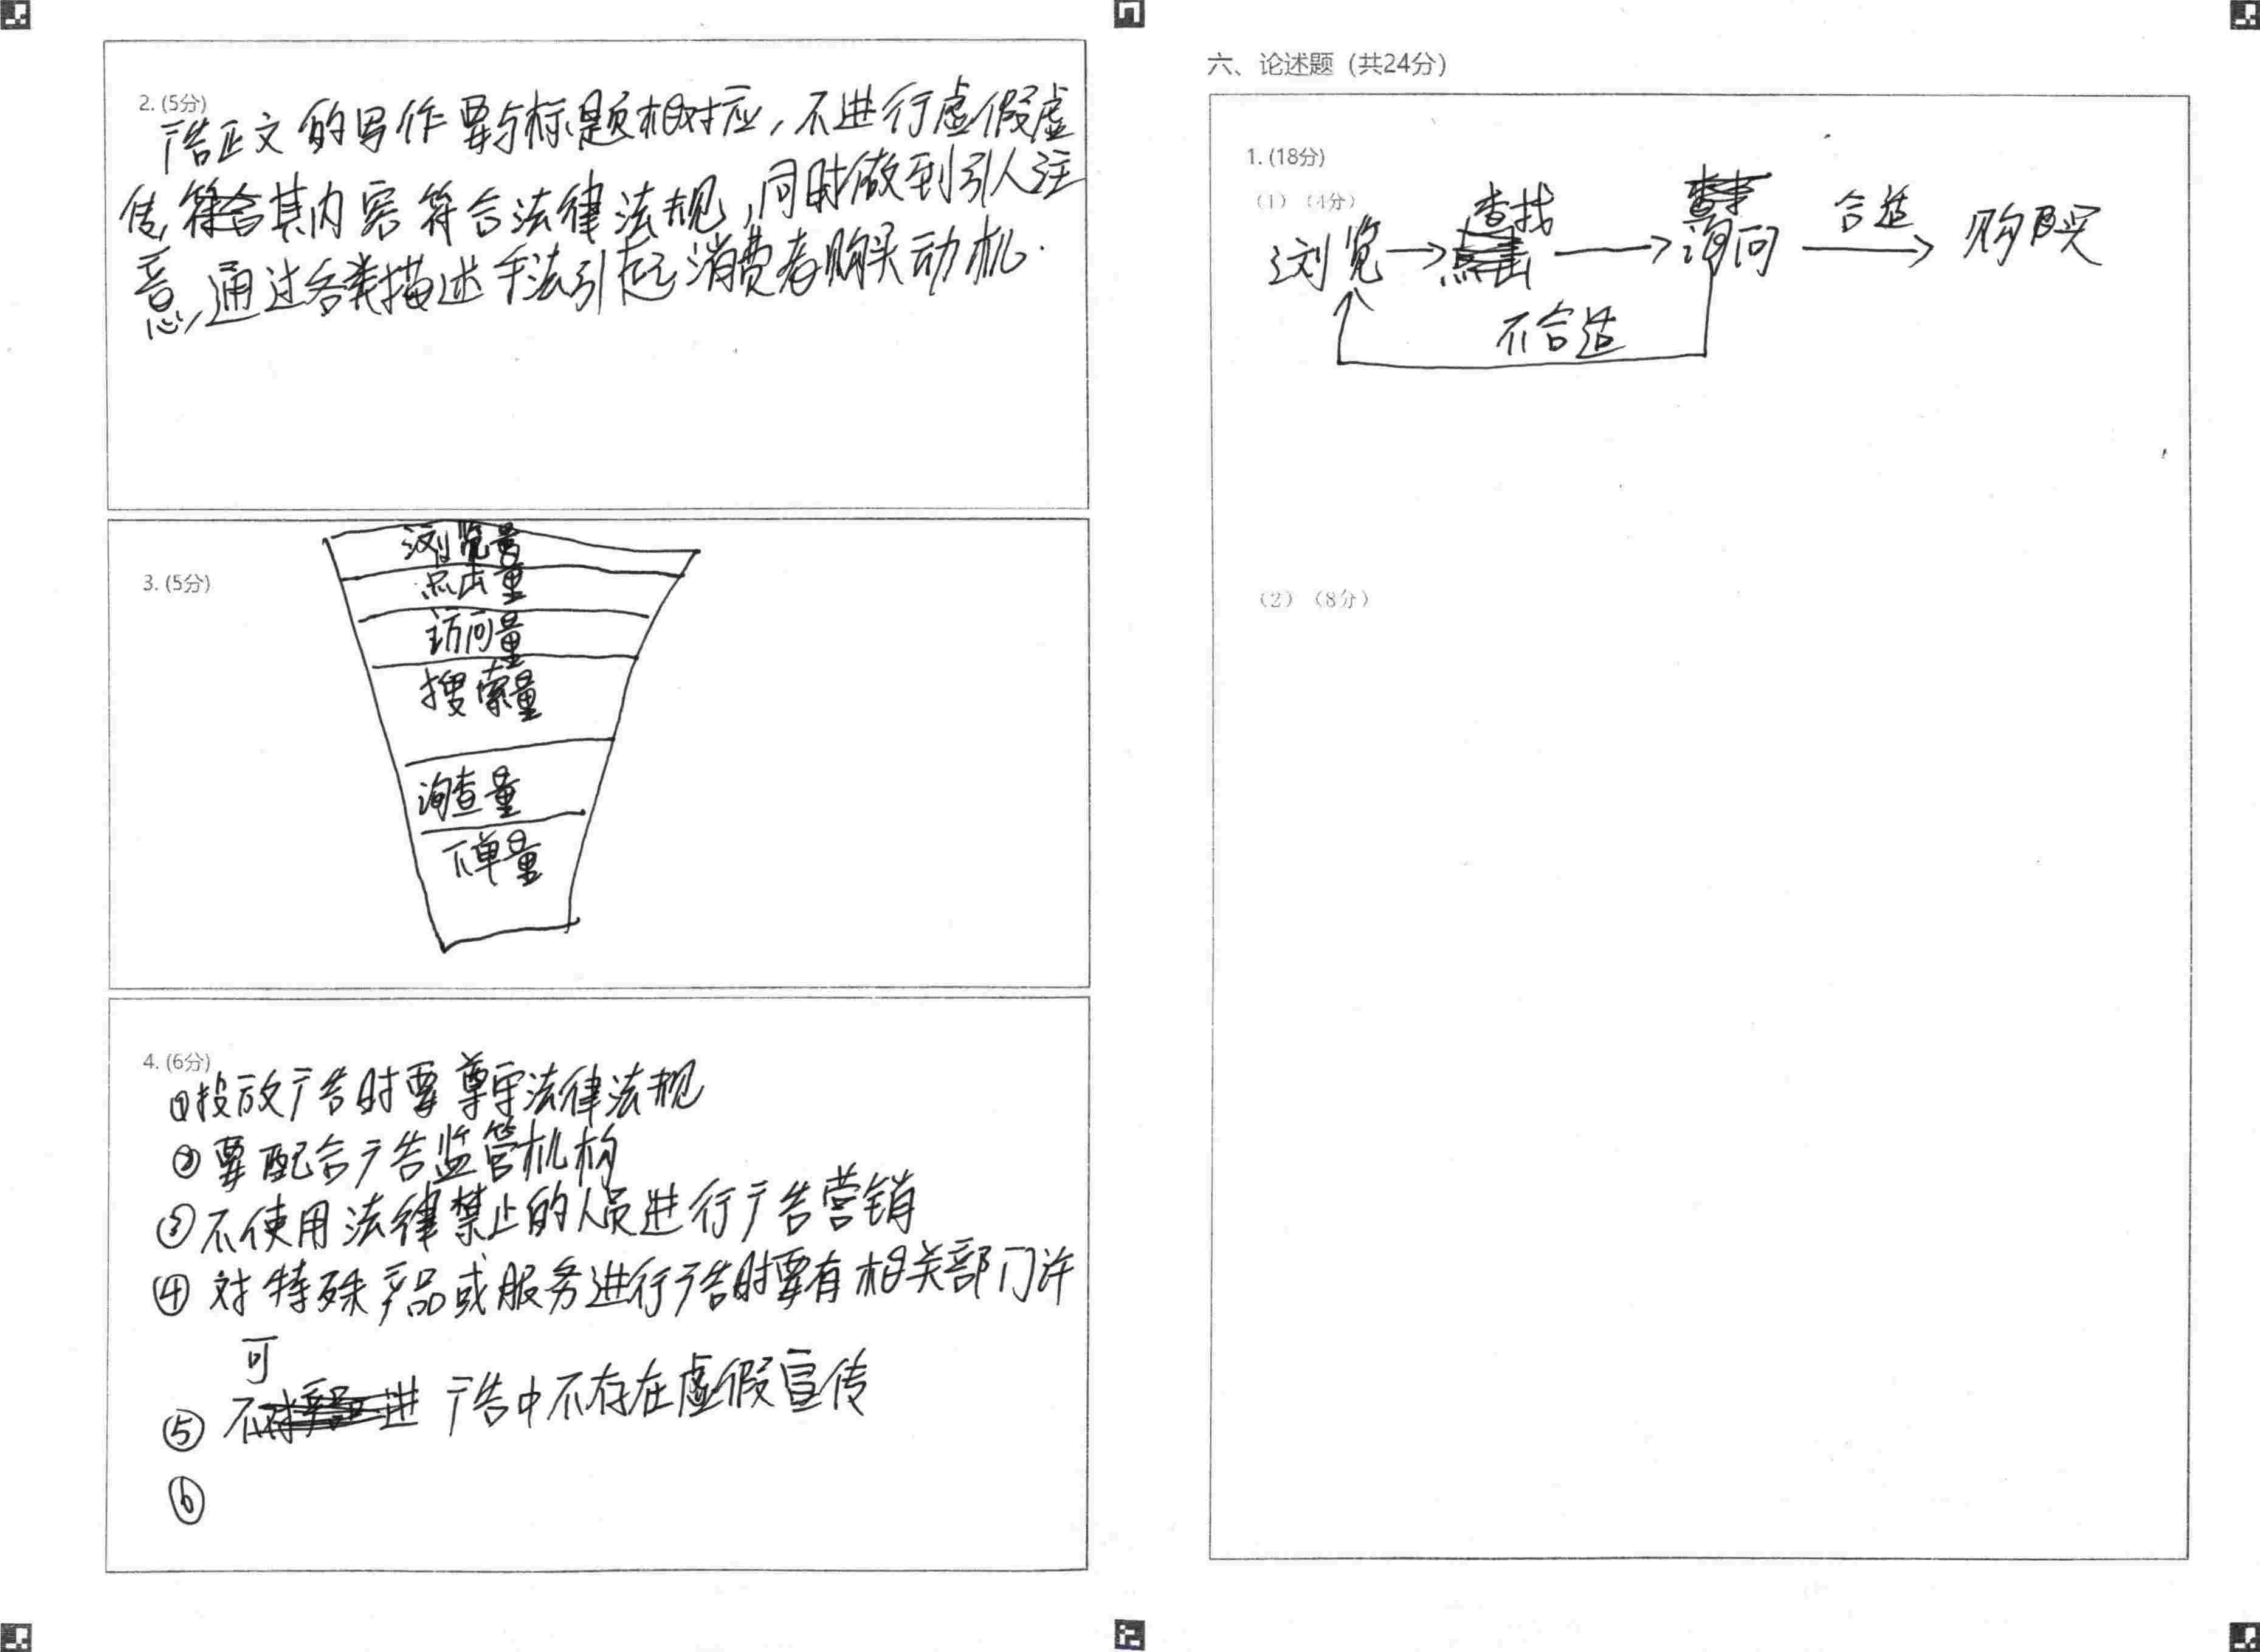 2. (5分)
广告正文的写作要与标题相对应，不进行虚假虚
传，其内容符合法律法规，同时做到引人注
意，通过各类描述手法引起消费者购买动机.
3. (5分)
浏览量
点击量
访问量
搜索量
询查量
下单量
4. (6分)
①投放广告时要尊守法律法规
②要配合广告监管机构
③不使用法律禁止的人员进行广告营销
④对特殊产品或服务进行广告时要有相关部门许
可
⑤ 广告中不存在虚假宣传
⑥
六、论述题（共24分）
1. (18分)
（1）（4分）
浏览→查找→询问 合适 购买
不合适
（2）（8分）